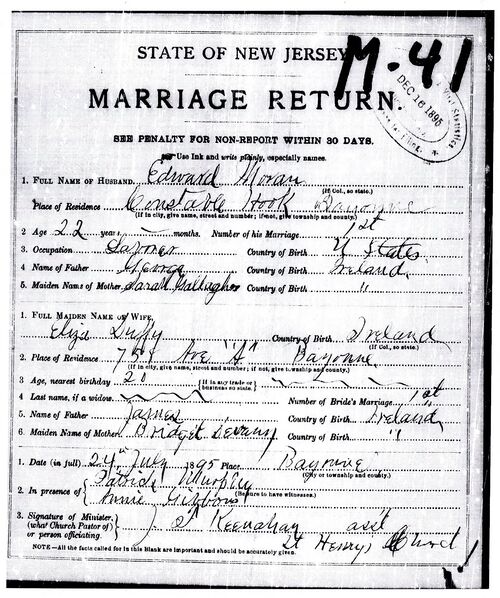 STATE OF NEW JERSEY
M-41
DEC 16 1895
MARRIAGE RETURN.
SEE PENALTY FOR NON-REPORT WITHIN 30 DAYS.
Use Ink and write plainly, especially names.
1. FULL NAME OF HUSBAND, Edward Moran
(If Col., so state.)
Place of Residence Constable Hook Bayonne
(If in city, give name, street and number; if not, give township and county.)
2 Age 22 years months. Number of his Marriage 1st
3. Occupation Laborer Country of Birth U States
4 Name of Father George Country of Birth Ireland
5. Maiden Name of Mother Sarah Gallagher Country of Birth "
1. FULL MAIDEN NAME OF WIFE,
Eliza Duffy Country of Birth Ireland
(If Col., so state.)
2. Place of Residence Ave "A" Bayonne
(If in city, give name, street and number; if not, give township and county.)
3 Age, nearest birthday 20 {If in any trade or business so state.}
4 Last name, if a widow Number of Bride's Marriage 1st
5 Name of Father James Country of Birth Ireland
6 Maiden Name of Mother Bridget Devany Country of Birth "
1. Date (in full) 24th July 1895 Place Bayonne
(City or township and county.)
2. In presence of { Patrick Murphy
Annie Gibbons (Be sure to have witnesses.)
3. Signature of Minister, (what Church Pastor of) or person officiating } Keenahan asst
St Henrys Church
NOTE—All the facts called for in this Blank are important and should be accurately given.